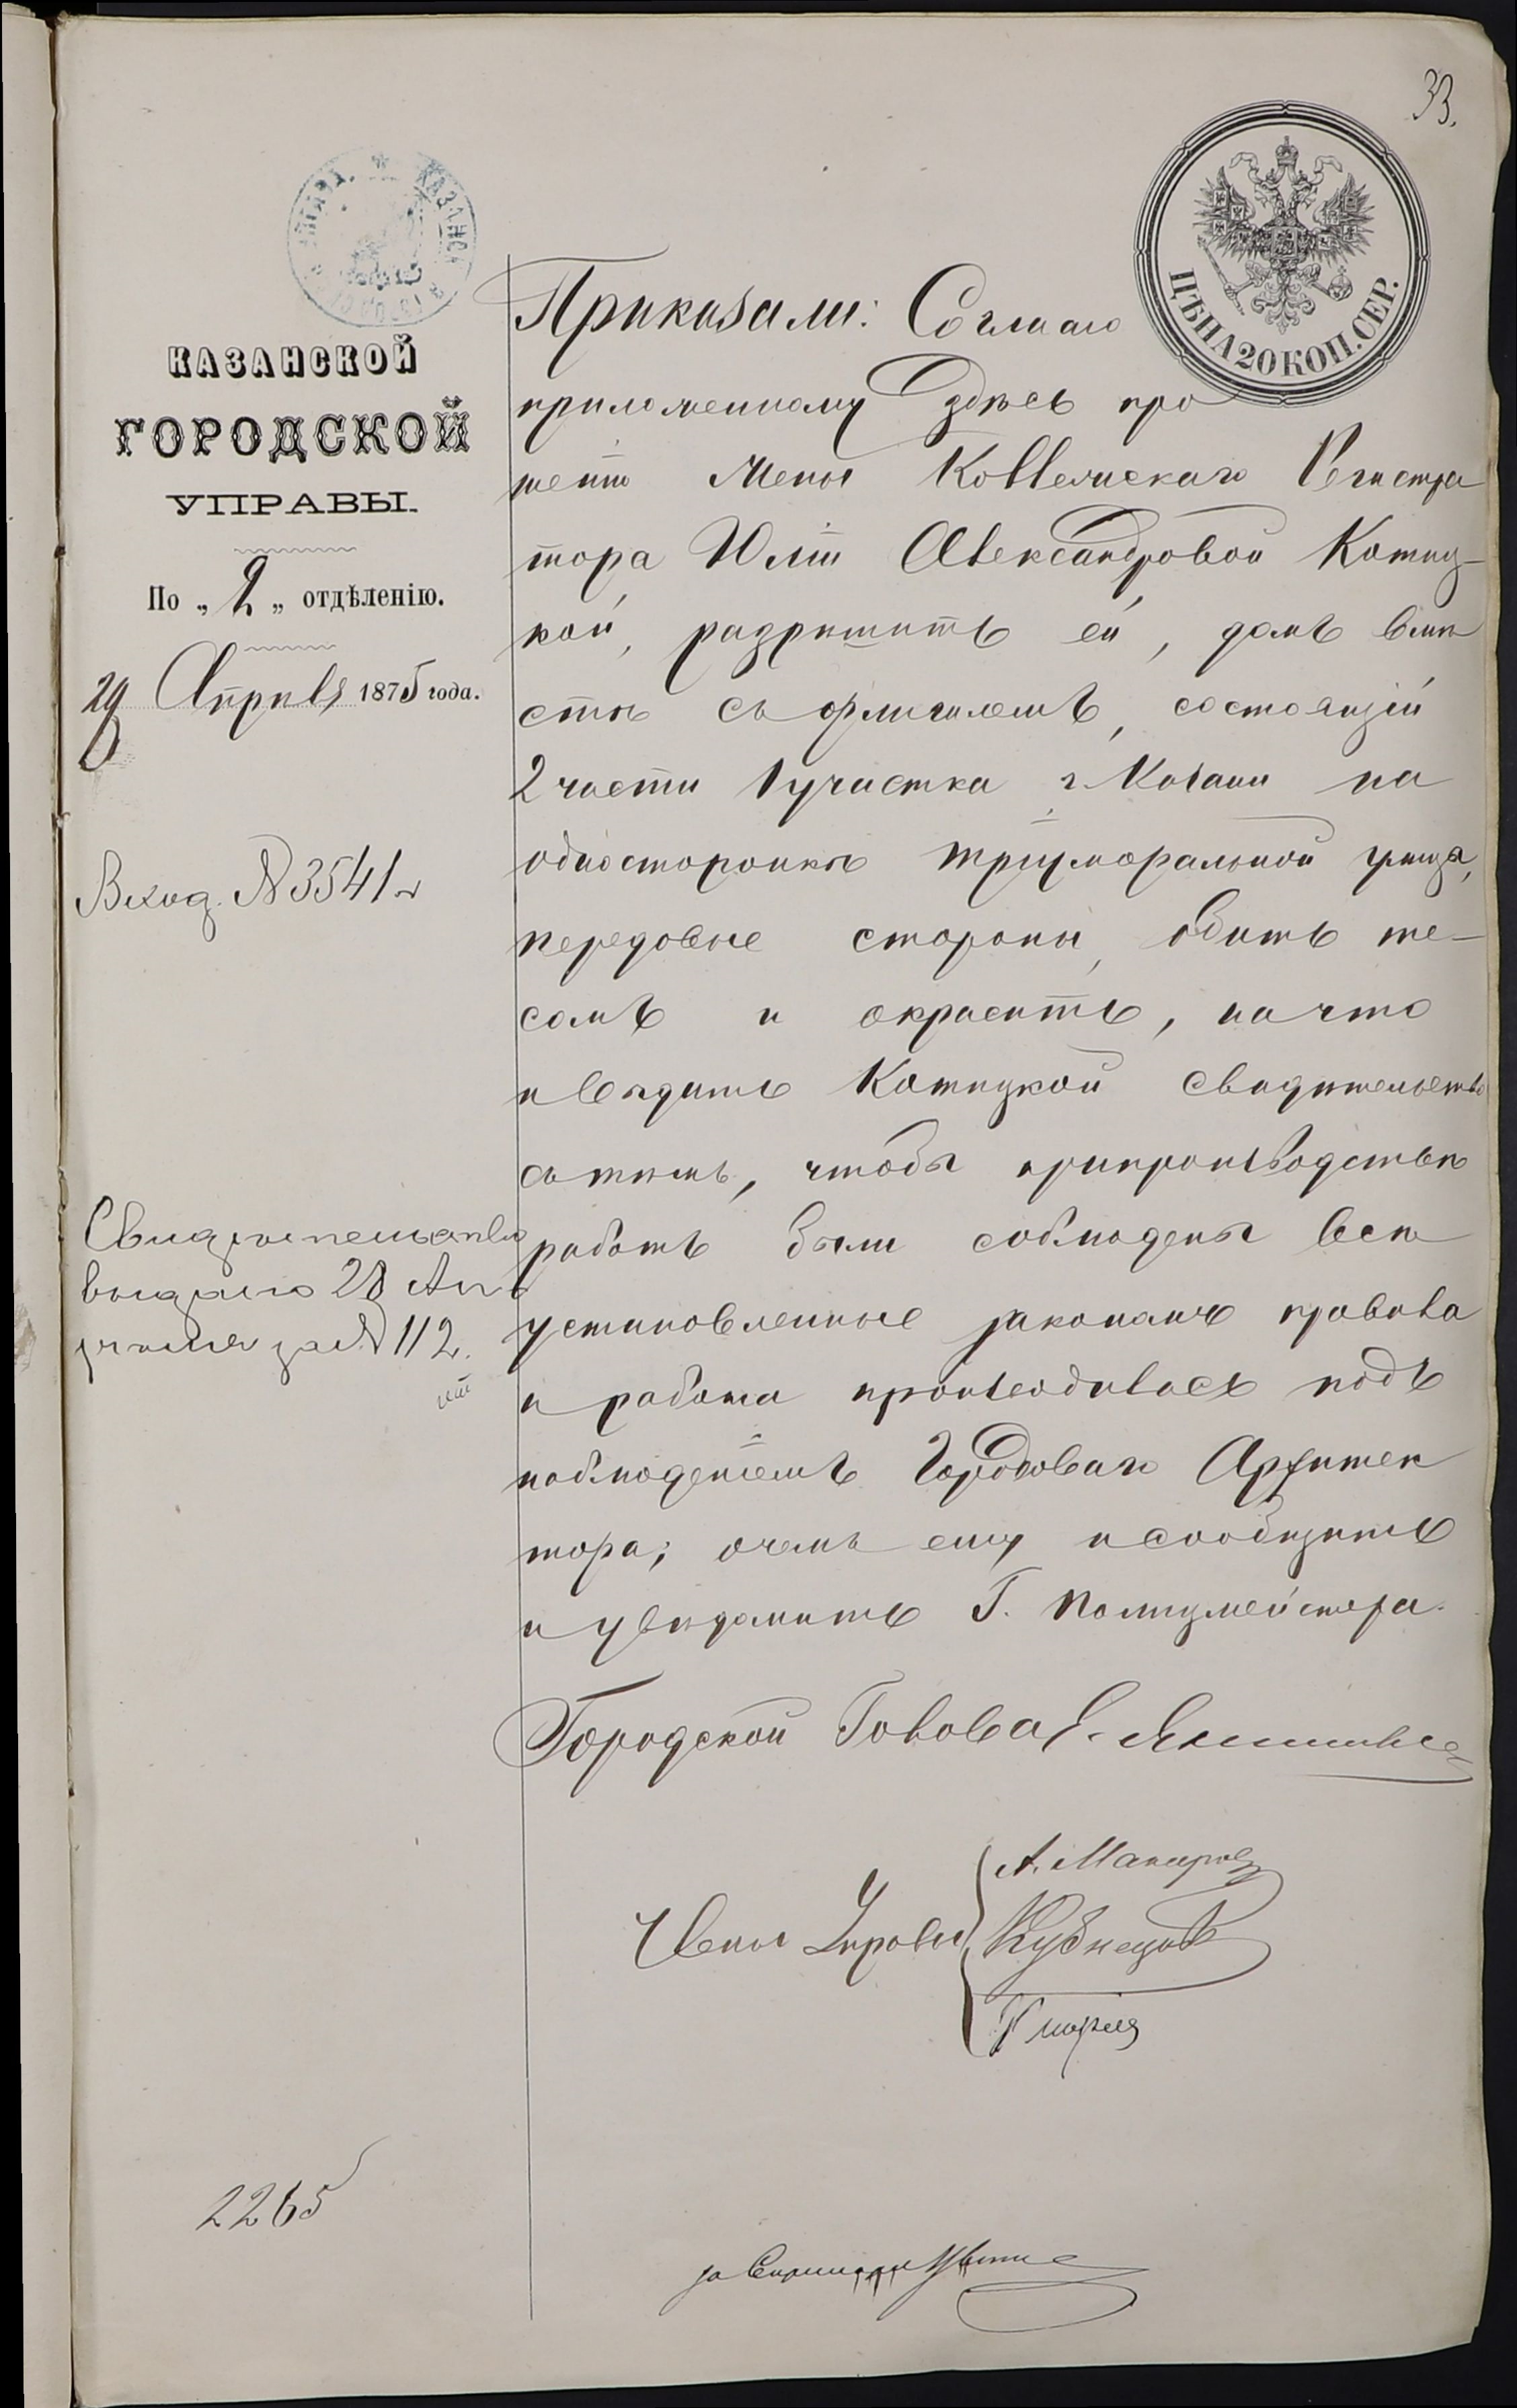 33.
ЦѢНА 20 КОП. СЕР.
КАЗАНСКОЙ
ГОРОДСКОЙ
УПРАВЫ.
По „2„ отдѣленію.
29 Апрѣля 1875 года.
Вход. № 3541
Свидѣтельство
выдано 28 Ап
рѣля за № 112.
2265
Приказали: Согласно
приложенному здѣсь про
шенію жены Коллежскаго Регистра
тора Юліи Александровой Котиц-
кой, разрѣшить ей, домъ вмѣ
стѣ съ флигилемъ, состоящій
2 части 1 участка г. Казани на
односторонкѣ Тріумфальной улицѣ,
передовые стороны, обить те-
сомъ и окрасить, на что
и выдать Котицкой свидѣтельство
съ тѣмъ, чтобы при производствѣ
работъ были соблюдены всѣ
установленные закономъ правила
и работа производилась подъ
наблюденіемъ Городоваго Архитек
тора; о чемъ ему и сообщить
и увѣдомить Г. Полицмейстера.
Городской Голова Е. Янишевс
Члены Управы
А. Макаров
Кузнецовъ
за Секретаря